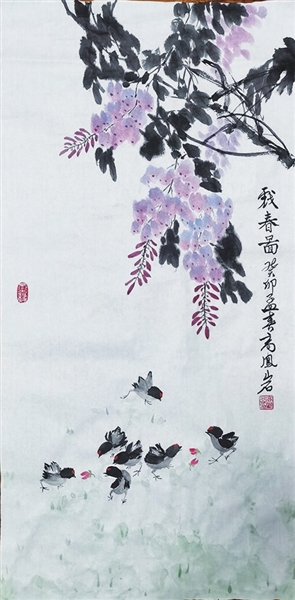 戏春图癸卯孟春高凤岩